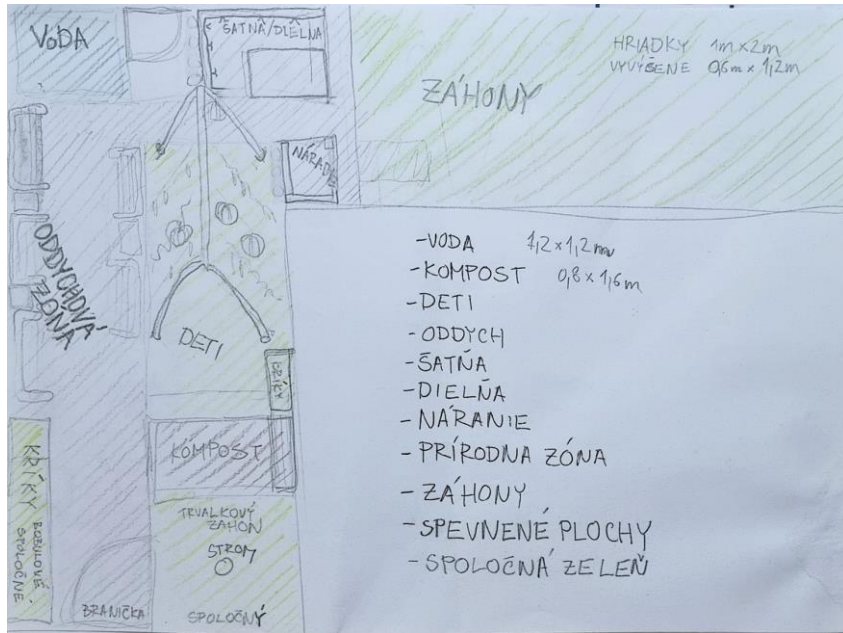 VODA
ŠATŇA/DIELŇA
HRIADKY 1m x 2m
VYVÝŠENE 0,6m x 1,2m
ZÁHONY
ODDYCHOVÁ
ZÓNA
DETI
KRÍKY
KOMPOST
KRÍKY BOBUĽOVÉ
SPOLOČNE
TRVALKOVÝ
ZÁHON
STROM
SPOLOČNÝ
BRANIČKA
-VODA 1,2 x 1,2m
-KOMPOST 0,8 x 1,6m
-DETI
-ODDYCH
-ŠATŇA
-DIELŇA
-NÁRANIE
-PRÍRODNA ZÓNA
-ZÁHONY
-SPEVNENÉ PLOCHY
-SPOLOČNÁ ZELEŇ